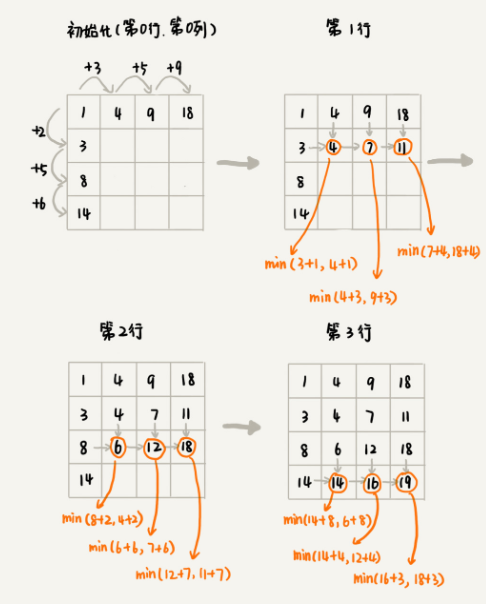 初始化(第0行.第0列)
+3 +5 +9
1 4 9 18
+2
3
+5
8
+6
14
第1行
1 4 9 18
3 4 7 11
8
14
min(7+4,18+4)
min(3+1, 4+1)
min(4+3, 9+3)
第2行
1 4 9 18
3 4 7 11
8 6 12 18
14
min(8+2,4+2)
min(6+6,7+6)
min(12+7,11+7)
第3行
1 4 9 18
3 4 7 11
8 6 12 18
14 14 16 19
min(14+8,6+8)
min(14+4,12+4)
min(16+3,18+3)